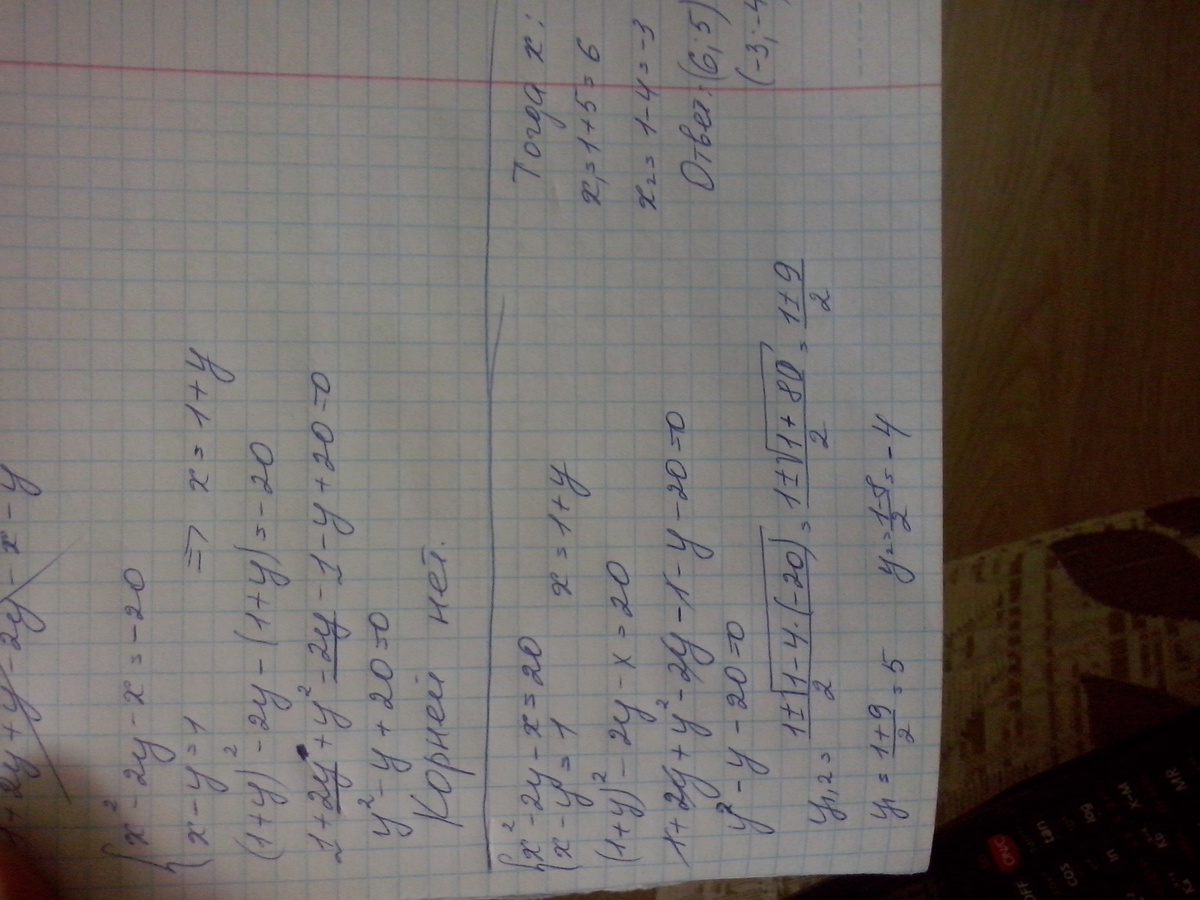 1+2y+y-2y-x-y
x²-2y-x=-20
x-y=1 ⇒ x=1+y
(1+y)²-2y-(1+y)=-20
1+2y+y²-2y-1-y+20=0
y²-y+20=0
Корней нет.
x²-2y-x=20
x-y=1 x=1+y
(1+y)²-2y-x=20
1+2y+y²-2y-1-y-20=0
y²-y-20=0
y₁,₂= 1±√1-4·(-20) / 2 = 1±√1+80 / 2 = 1±9 / 2
y₁= 1+9 / 2 =5 y₂= 1-9 / 2 =-4
Тогда x:
x₁=1+5=6
x₂=1-4=-3
Ответ: (6;5)
(-3;-4
OFF ON/C
cos tan log X→M
in MR